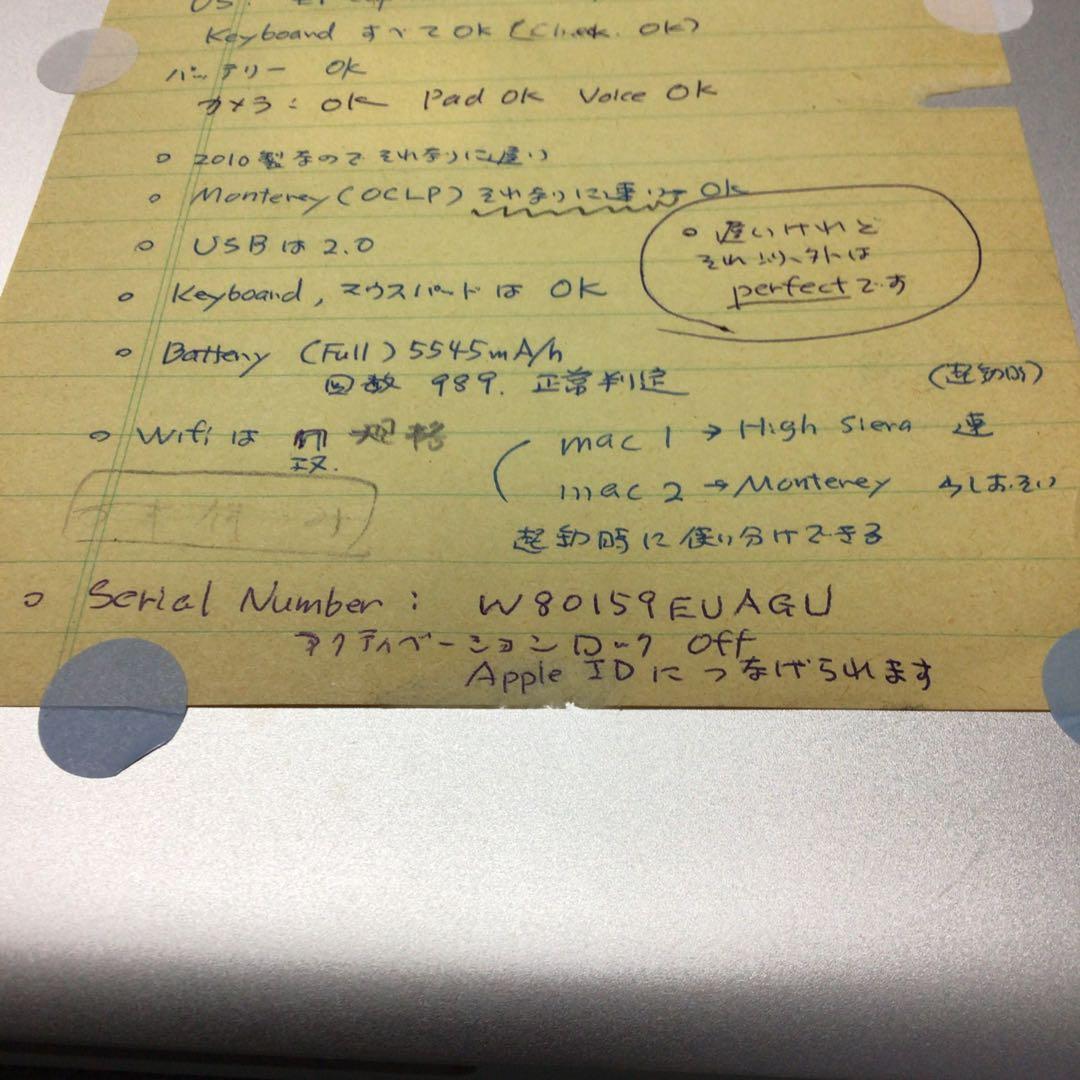 Keyboard すべてOK (Check. OK)
バッテリー OK
カメラ: OK Pad OK Voice OK
○ 2010製なので それなりに遅い
○ Monterey (OCLP) それなりに速い OK
○ 遅いけれど
それ以外は
perfectです
○ USBは2.0
○ Keyboard, マウスパードは OK
○ Battery (Full) 5545mA/h
回数 989. 正常判定
(起動時)
○ Wifiは 規格
mac 1 → High Siera 速
mac 2 → Monterey 少しおそい
起動時に使い分けできる
○ Serial Number: W80159EUAGU
アクティベーションロック Off
Apple IDにつなげられます